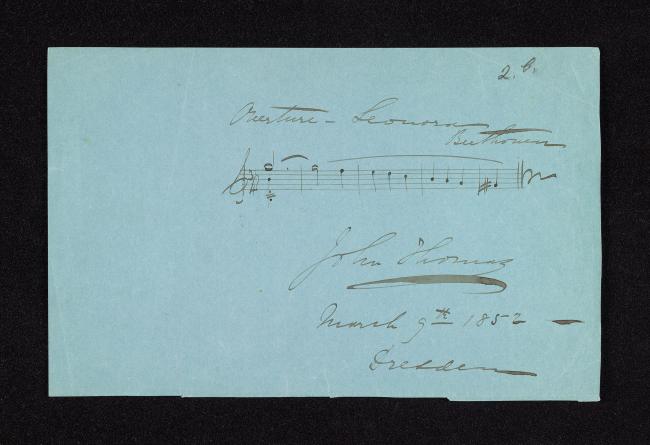 2. b.
Overture - Leonora
Beethoven
John Thomas
March 9th 1852
Dresden